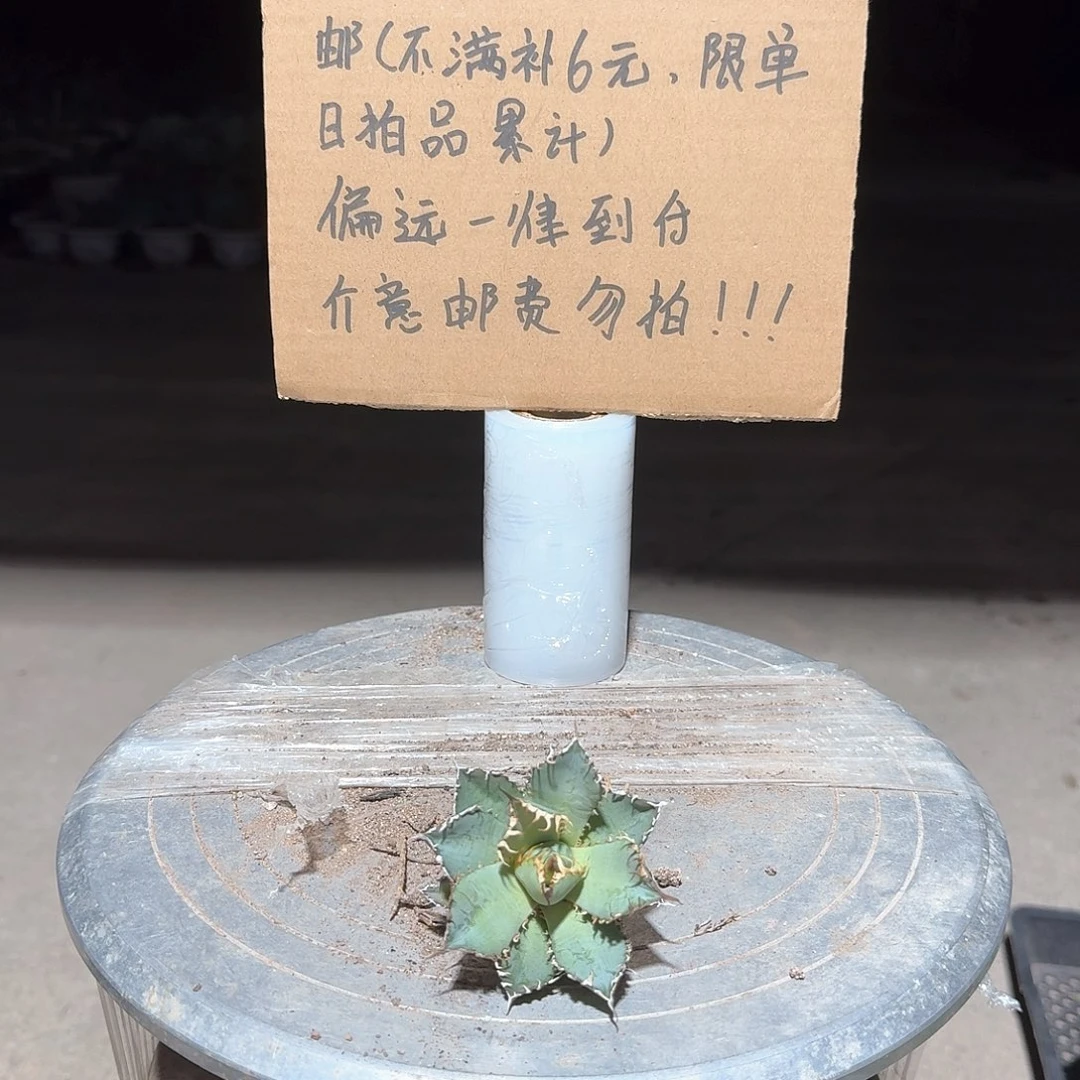 邮(不满补6元、限单
日拍品累计)
偏远一律到付
介意邮费勿拍!!!